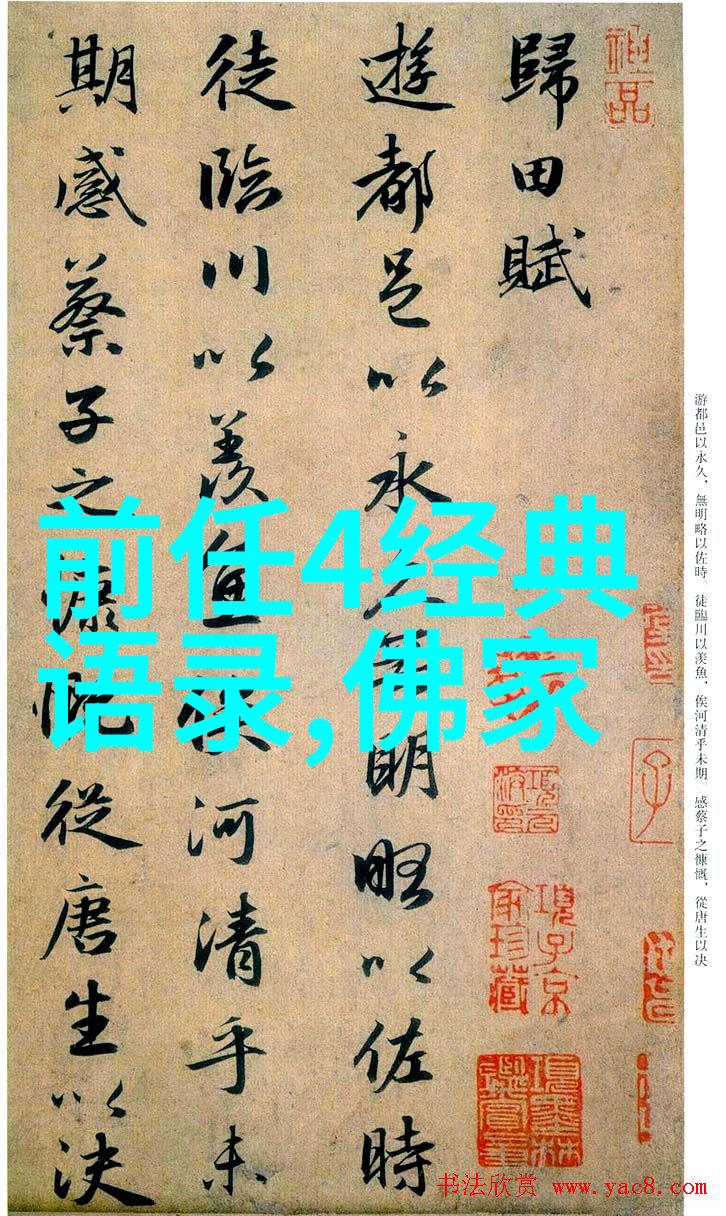 歸田賦
遊都邑以永久無明略以佐時
徒臨川以羨魚俟河清乎未
期感蔡子之慷慨從唐生以決
前任4经典
语录,佛家
游都邑以永久，無明略以佐時　徒臨川以羨魚，俟河清乎未期。感蔡子之慷慨，從唐生以決
項子京
家珍藏
书法欣赏 www.yac8.com